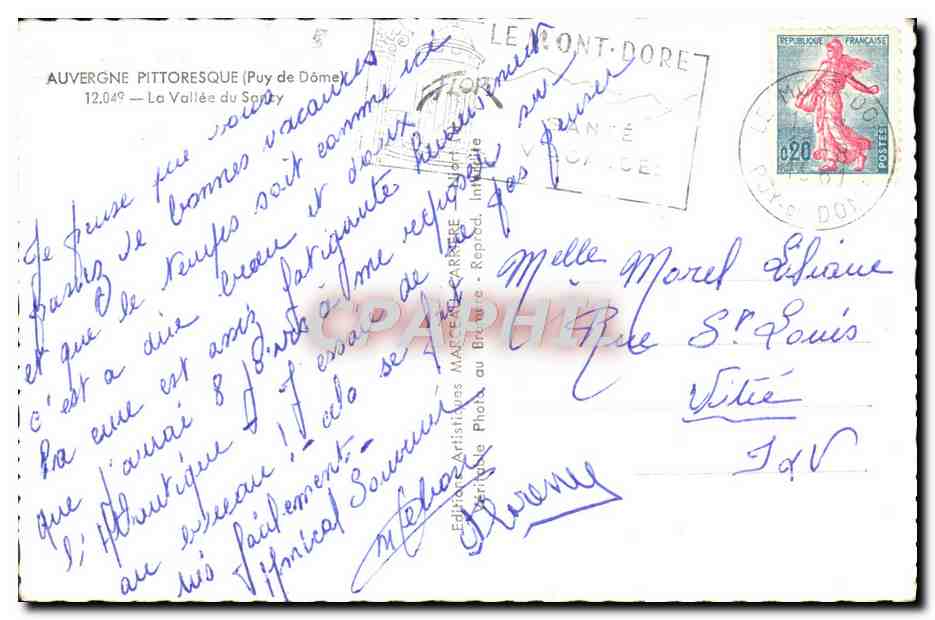 AUVERGNE PITTORESQUE (Puy de Dôme)
12.049 — La Vallée du Sancy
Je pense que vous
passez de bonnes vacances
et que le temps soit comme ici
c'est a dire beau et doux
La cure est assez fatigante heureusement
que j'aurai 8 jours à me reposer sur
l'Atlantique J'essaie de ne pas penser
au bureau! cela se fait
très facilement -
Amical Souvenir
Editions Artistiques MARCEAU CARRIERE
Véritable Photo au Bromure - Reprod. Interdite
LE MONT-DORE
SANTÉ
VACANCES
FLOR
REPUBLIQUE FRANÇAISE
0,20
POSTES
LE MONT DORE
PUY-DE DOME
Melle Morel Liliane
Rue St Louis
Vitré
I & V
CPAPHIL